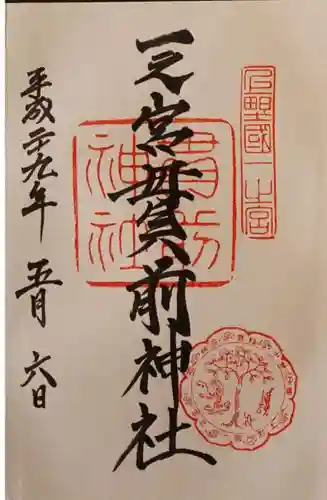 上野國一之宮
一之宮貫前神社
貫前神社
平成二十九年 五月 六日